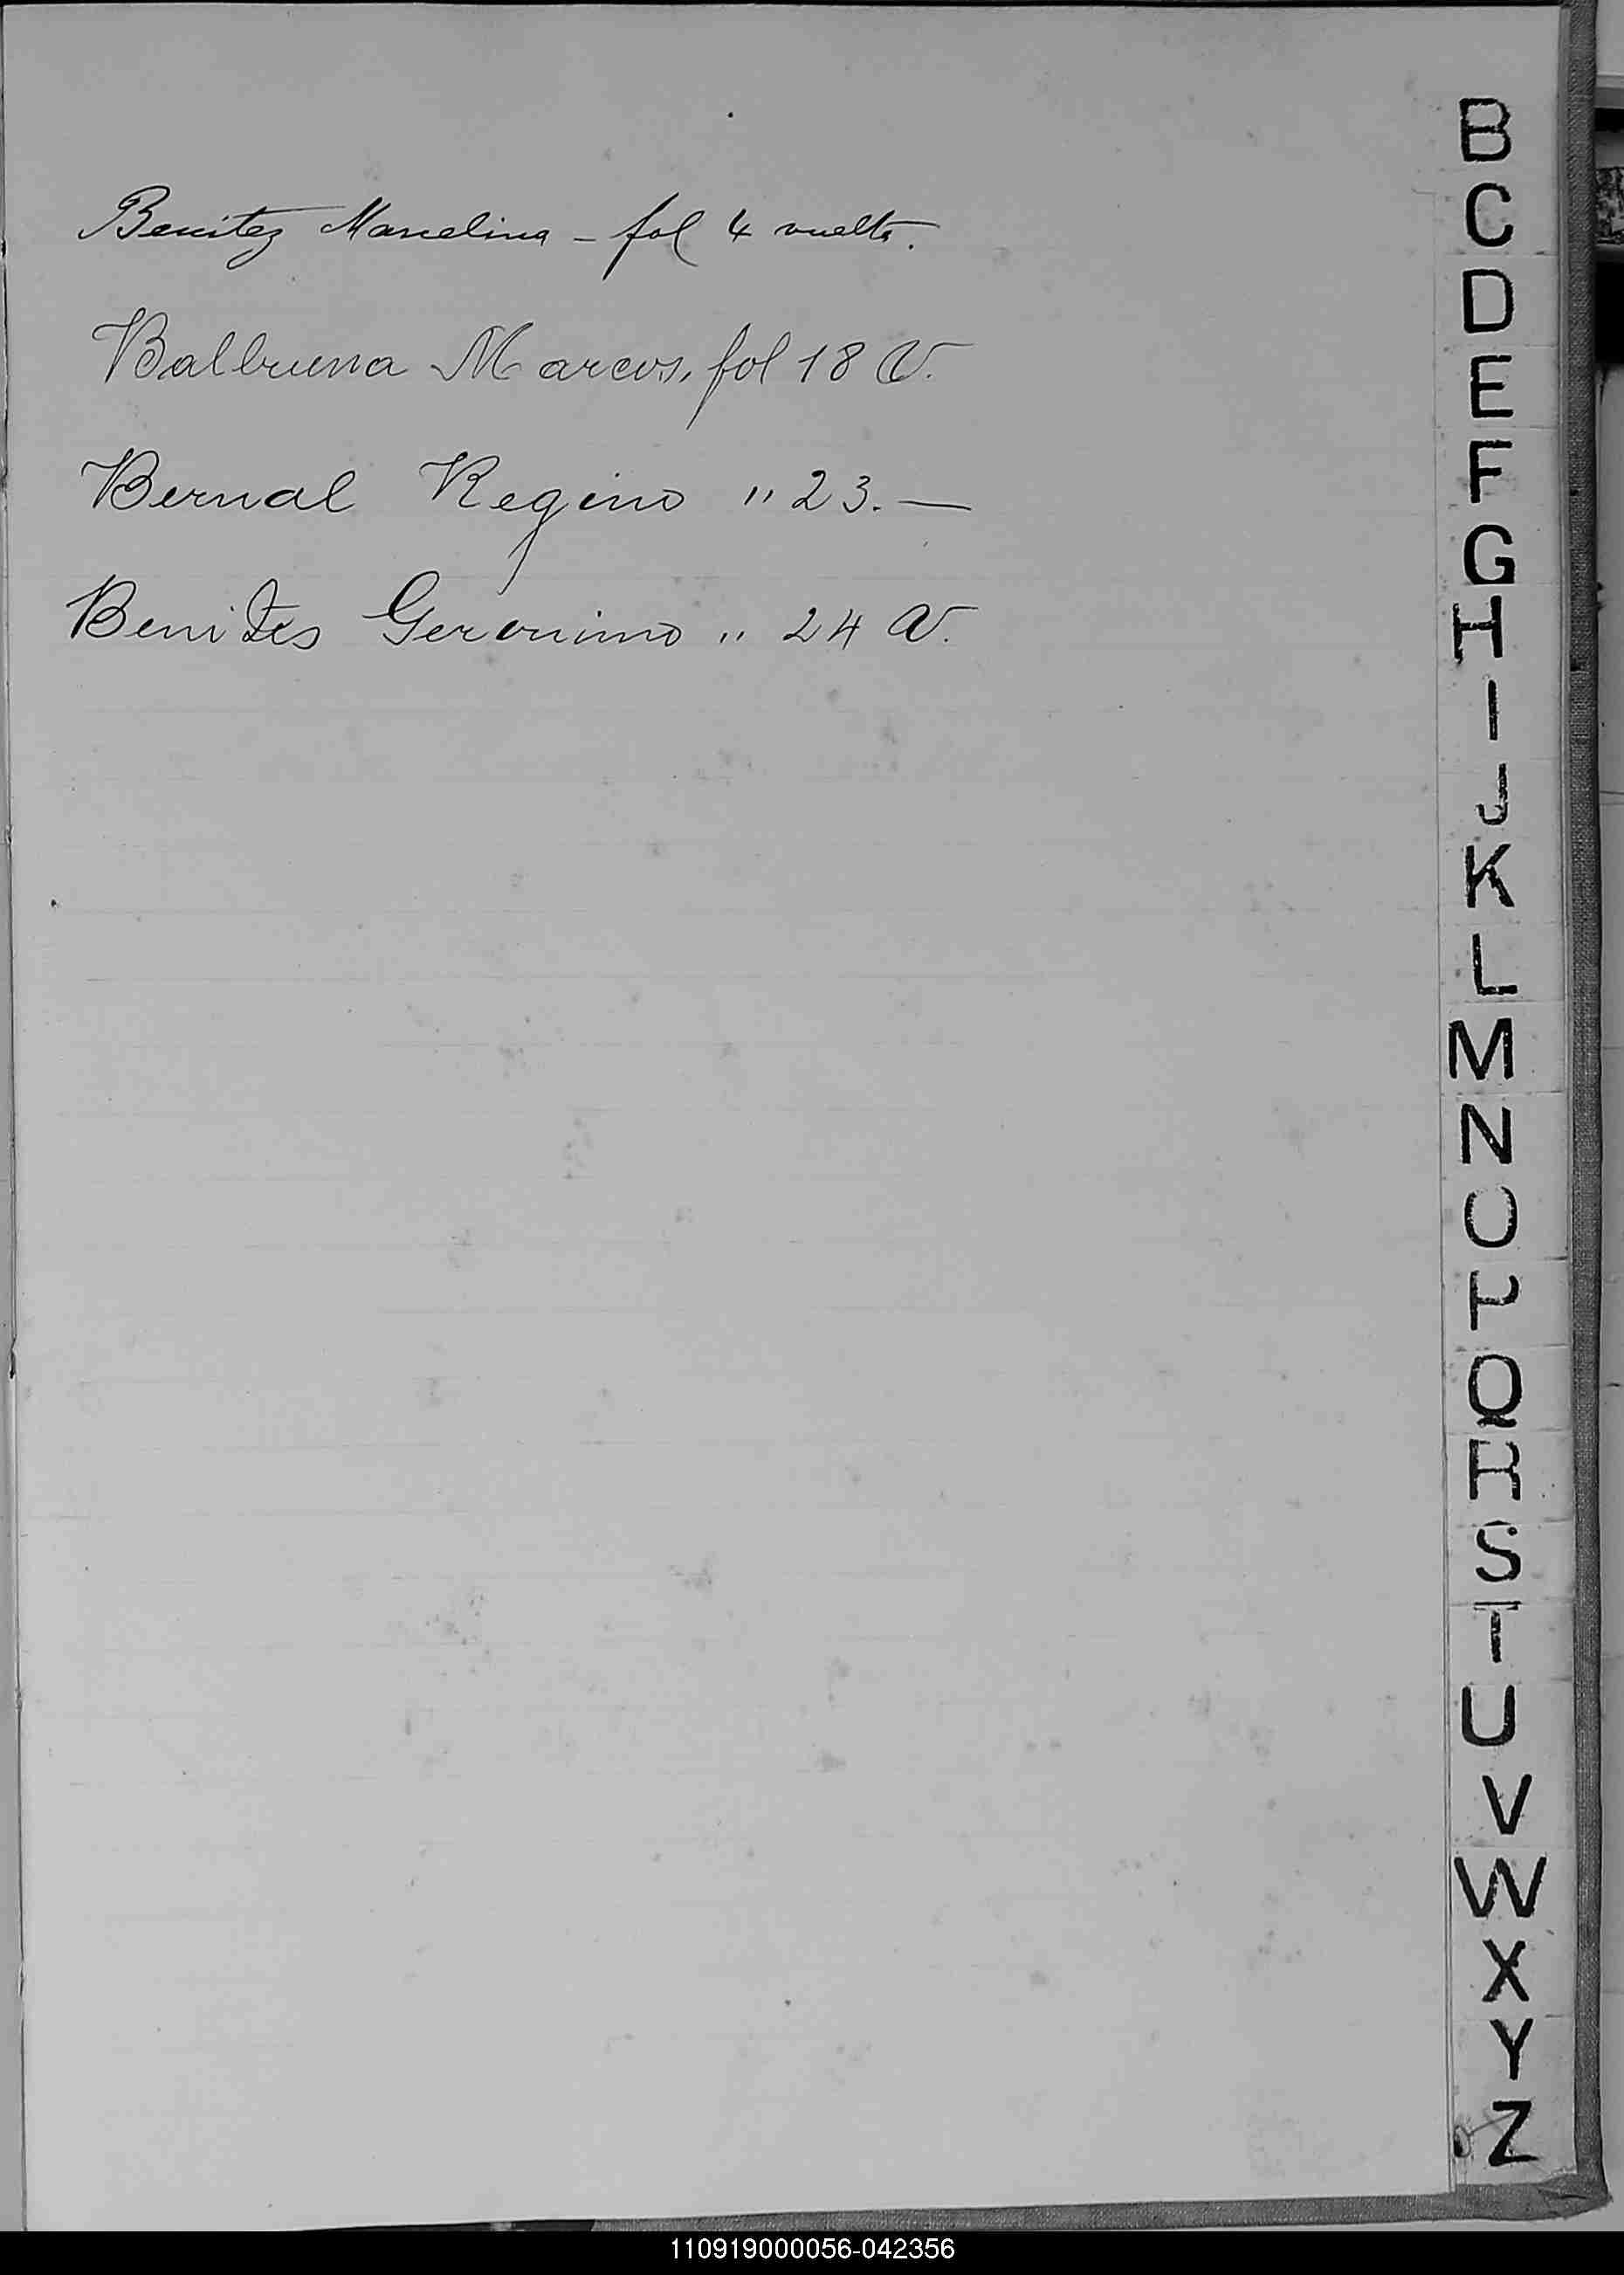 Benitez Marcelina - fol 4 vuelta.
Balbuena Marcos, fol 18 V.
Bernal Regino " 23. —
Benites Geronimo " 24 V.
B
C
D
E
F
G
H
I
J
K
L
M
N
O
P
Q
R
S
T
U
V
W
X
Y
Z
110919000056-042356